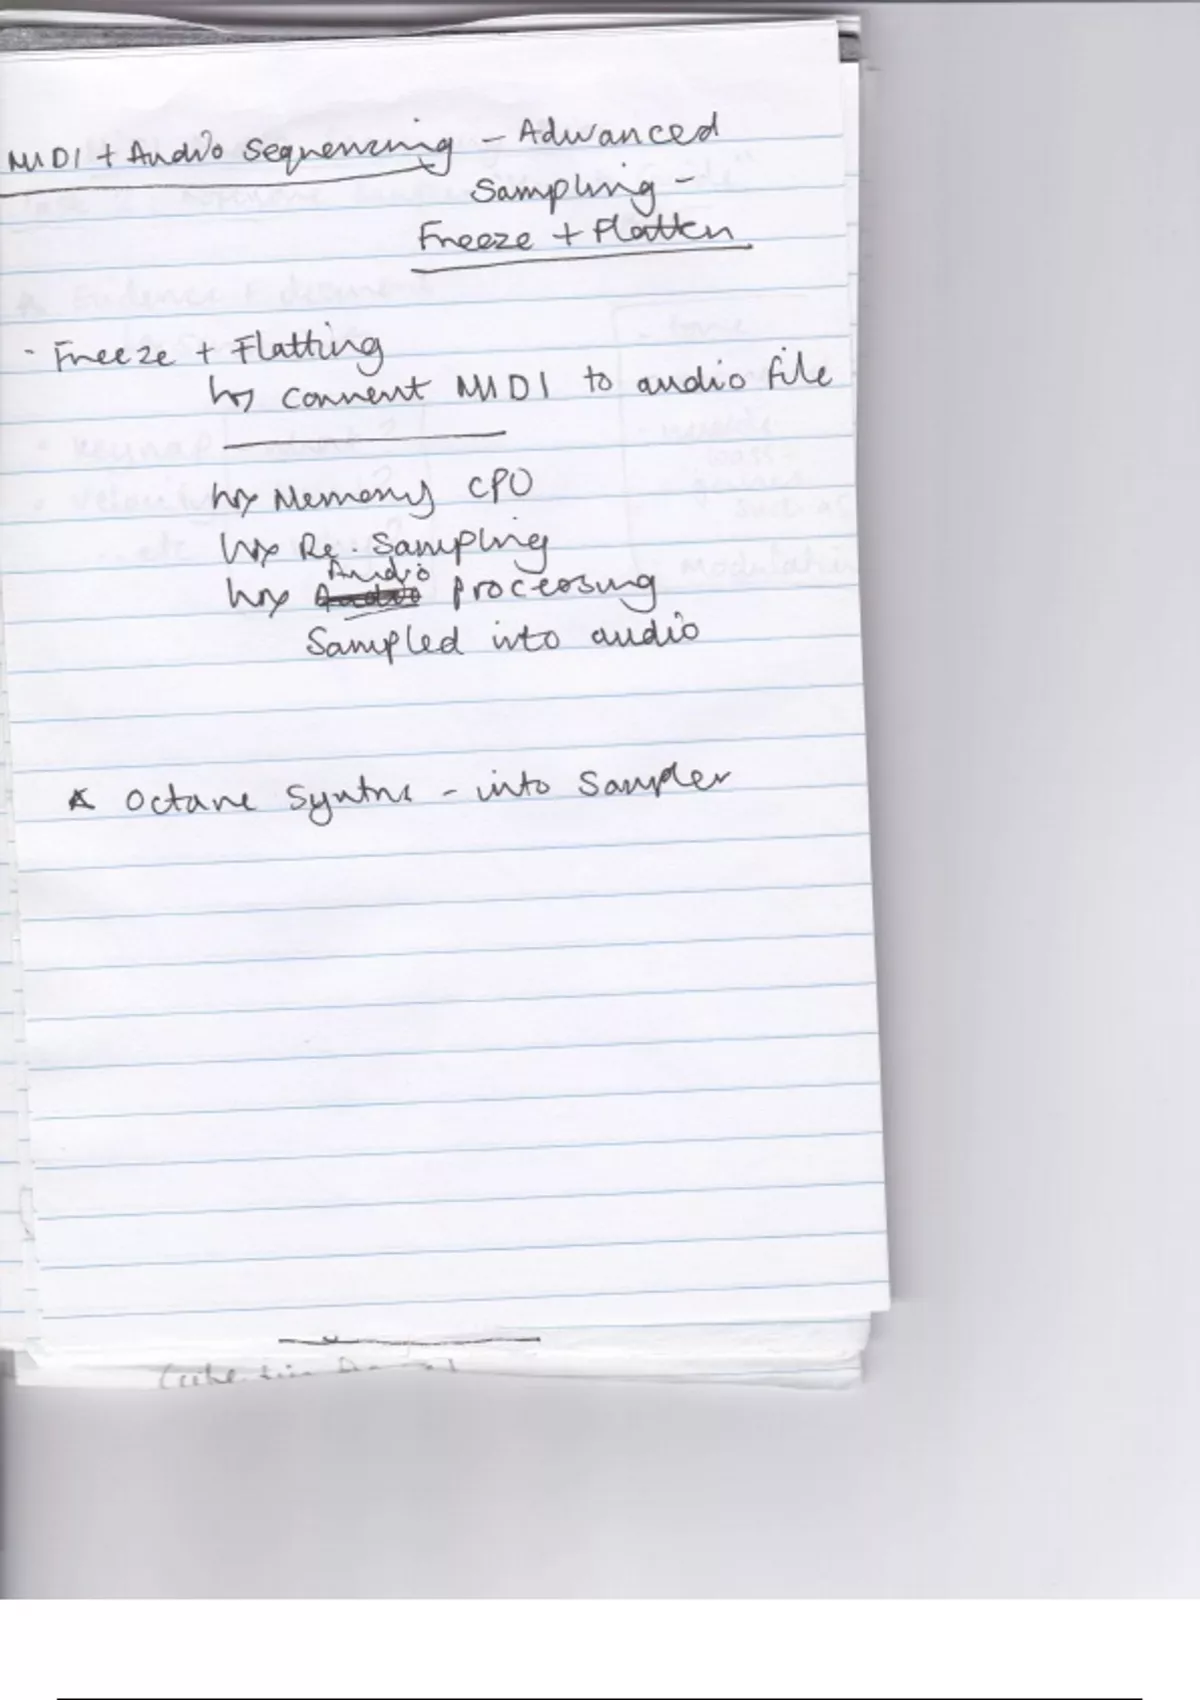 MIDI + Audio Sequencing - Advanced
Sampling -
Freeze + Flatten
- Freeze + Flatting
↳ Convert MIDI to audio file
↳ Memory CPU
↳ Re-Sampling
Audio
↳ Audio processing
Sampled into audio
* Octave Synths - into Sampler